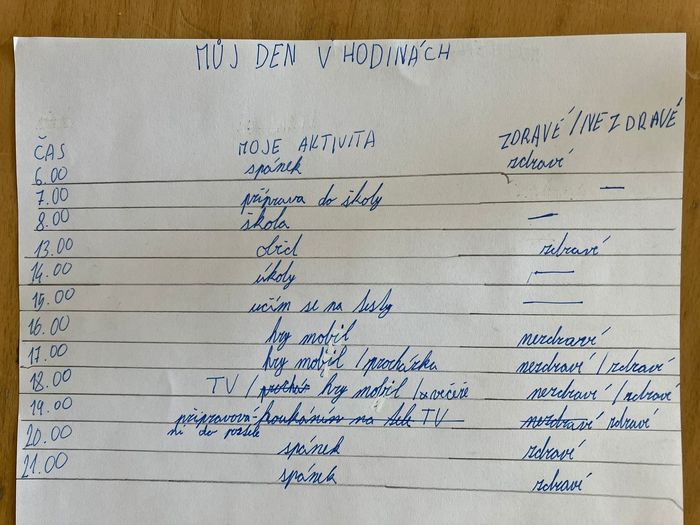 MŮJ DEN V HODINÁCH
ČAS MOJE AKTIVITA ZDRAVÉ/NEZDRAVÉ
6.00 spánek zdraví
7.00 příprava do školy —
8.00 škola —
13.00 oběd zdraví
14.00 úkoly —
15.00 učím se na testy —
16.00 hry mobil nezdraví
17.00 hry mobil/procházka nezdraví/zdraví
18.00 TV/prochár hry mobil/večeře nezdraví/zdraví
19.00 připravová koukáním na tele TV nezdraví zdraví
ní do postele
20.00 spánek zdraví
21.00 spánek zdraví